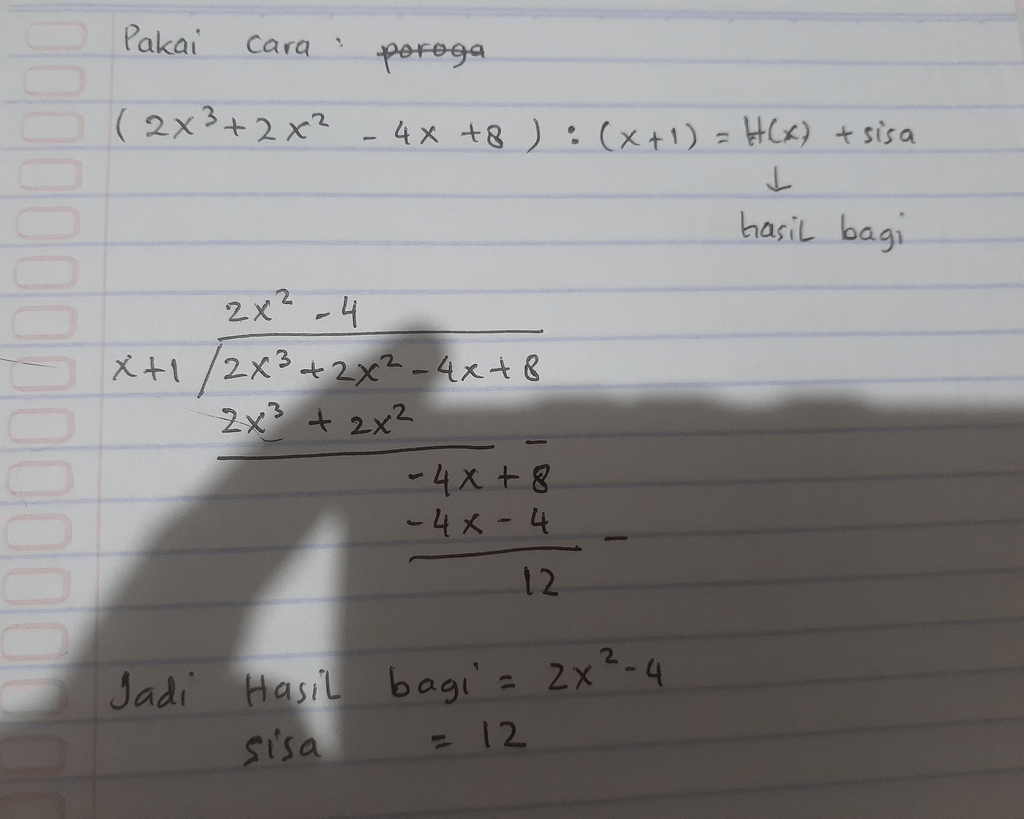 Pakai cara : poroga
( 2x³ + 2x² - 4x + 8 ) : (x+1) = H(x) + sisa
↓
hasil bagi
2x² - 4
x+1 / 2x³ + 2x² - 4x + 8
2x³ + 2x²
-
-4x + 8
-4x - 4
-
12
Jadi Hasil bagi = 2x² - 4
sisa = 12